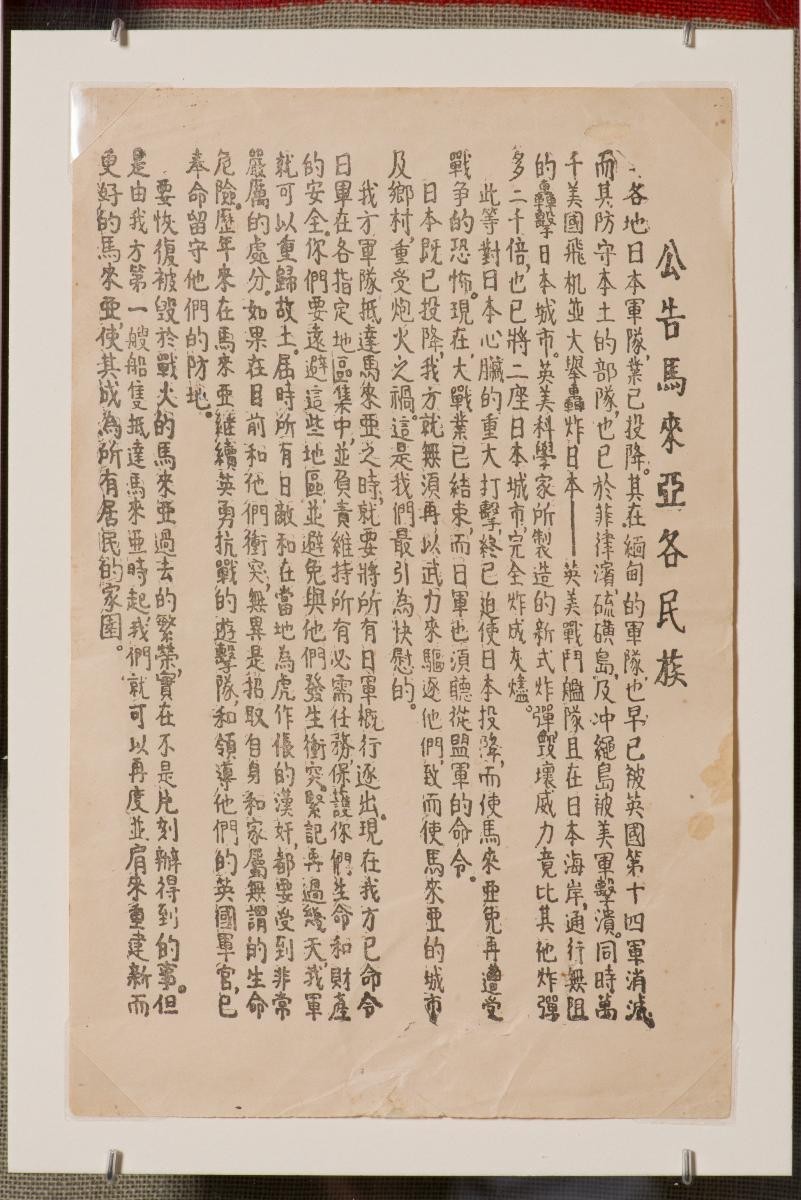 公告馬來亞各民族
各地日本軍隊,業已投降。其在緬甸的軍隊,也早已被英國第十四軍消滅,
而其防守本土的部隊,也已於菲律濱,硫磺島,及冲繩島被美軍擊潰。同時萬
千美國飛机並大舉轟炸日本——英美戰鬥艦隊且在日本海岸,通行無阻
的轟擊日本城市。英美科學家所製造的新式炸彈,毀壞威力竟比其他炸彈
多二千倍,也已將二座日本城市,完全炸成灰燼。
此等對日本心臟的重大打擊,終已迫使日本投降,而使馬來亞免再遭受
戰争的恐怖。現在,大戰業已結束,而日軍也須聽從盟軍的命令。
日本既已投降,我方就無須再以武力來驅逐他們,致而使馬來亞的城市
及鄉村,重受炮火之禍。這是我們最引為快慰的。
我方軍隊抵達馬來亞之時,就要將所有日軍概行逐出。現在我方已命令
日軍在各指定地區集中,並負責維持所有必需任務,保護你們生命和財產
的安全。你們要遠避這些地區,並避免與他們發生衝突。緊記再過幾天,我軍
就可以重歸故土。屆時所有日敵和在當地為虎作倀的漢奸,都要受到非常
嚴厲的處分。如果在目前和他們衝突,無異是招取自身和家屬無謂的生命
危險。歷年來在馬來亞繼續英勇抗戰的遊擊隊,和領導他們的英國軍官,已
奉命留守他們的防地。
要恢復被毀於戰火的馬來亞過去的繁榮,實在不是片刻辦得到的事。但
是由我方第一艘船隻抵達馬來亞時起,我們就可以再度並肩來重建新而
更好的馬來亞,使其成為所有居民的家園。